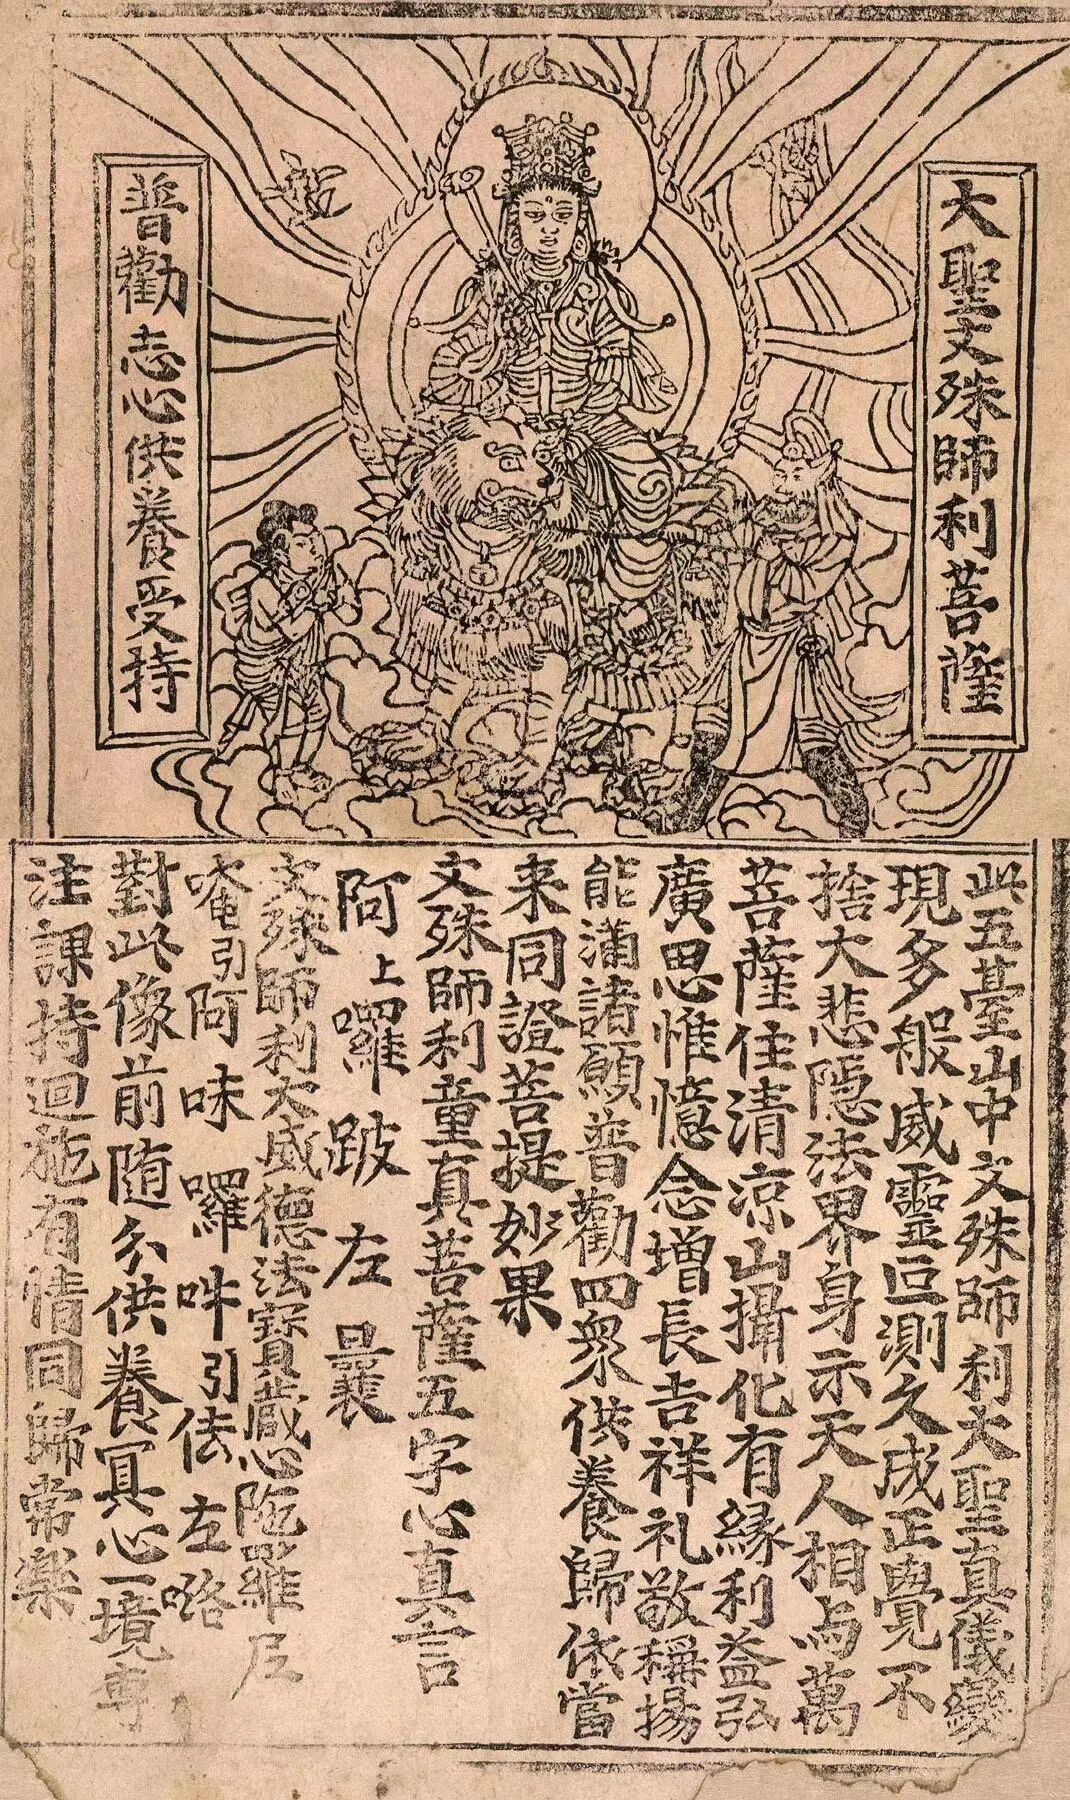 大聖文殊師利菩薩
普勸志心供養受持
此五臺山中文殊師利大聖真儀變
現多般威靈叵測久成正覺不
捨大悲隱法界身示天人相与萬
菩薩住清涼山攝化有緣利益弘
廣思惟憶念增長吉祥礼敬稱揚
能滿諸願普勸四衆供養歸依當
来同證菩提妙果
文殊師利童真菩薩五字心真言
阿上囉跛左曩
文殊師利大威德法寶藏心陁羅尼
唵引阿味囉𤙖引佉左咯
對此像前随分供養冥心一境專
注課持迴施有情同歸常樂